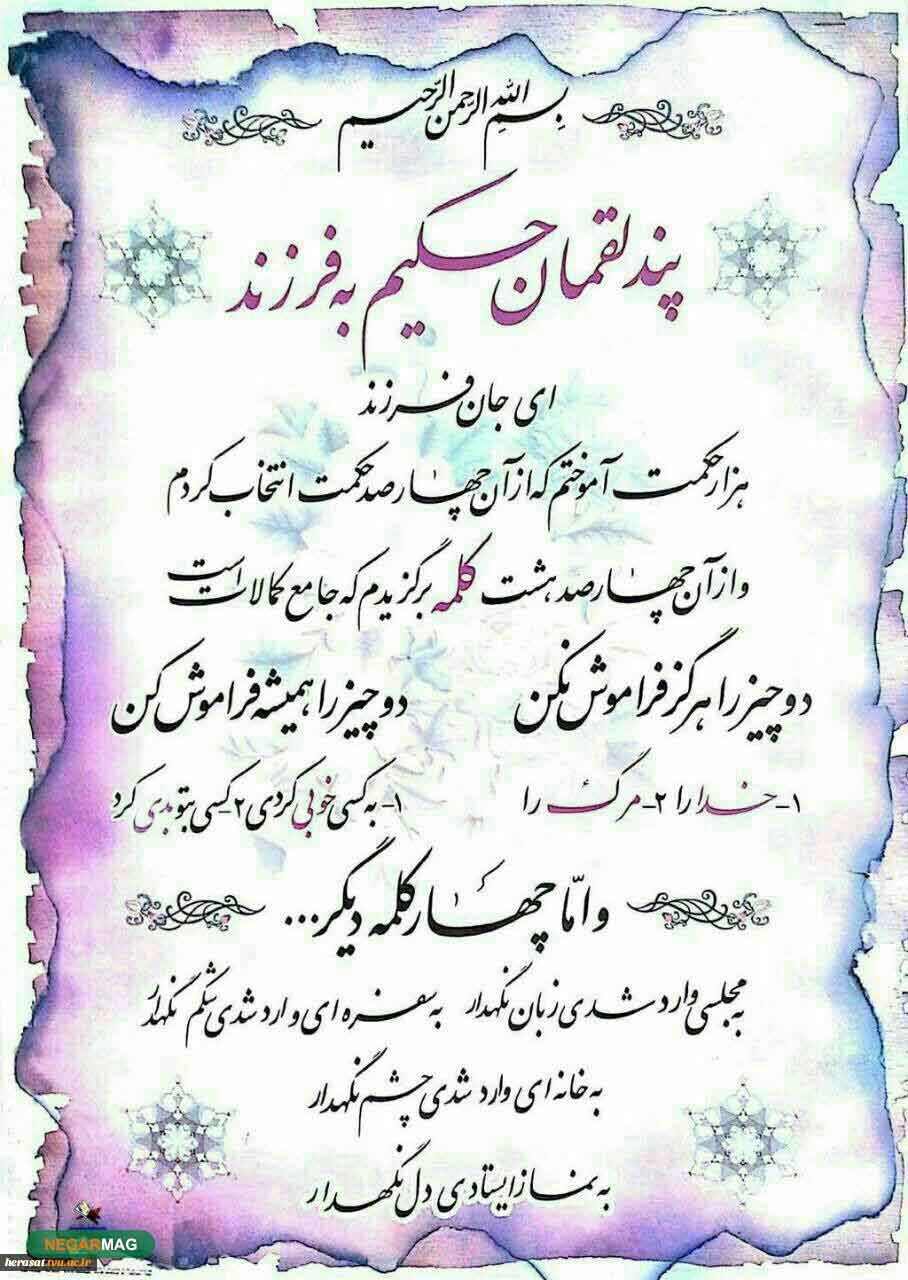 بسم الله الرحمن الرحیم
پند لقمان حکیم به فرزند
ای جان فرزند
هزار حکمت آموختم که از آن چهارصد حکمت انتخاب کردم
و از آن چهارصد هشت کلمه برگزیدم که جامع کمالات است
دو چیز را هرگز فراموش نکن
دو چیز را همیشه فراموش کن
۱- خدا را ۲- مرگ را
۱- به کسی خوبی کردی ۲- کسی بتو بدی کرد
و امّا چهار کلمه دیگر...
به مجلسی وارد شدی زبان نگهدار به سفره ای وارد شدی شکم نگهدار
به خانه ای وارد شدی چشم نگهدار
به نماز ایستادی دل نگهدار
NEGARMAG
herasat.tvu.ac.ir